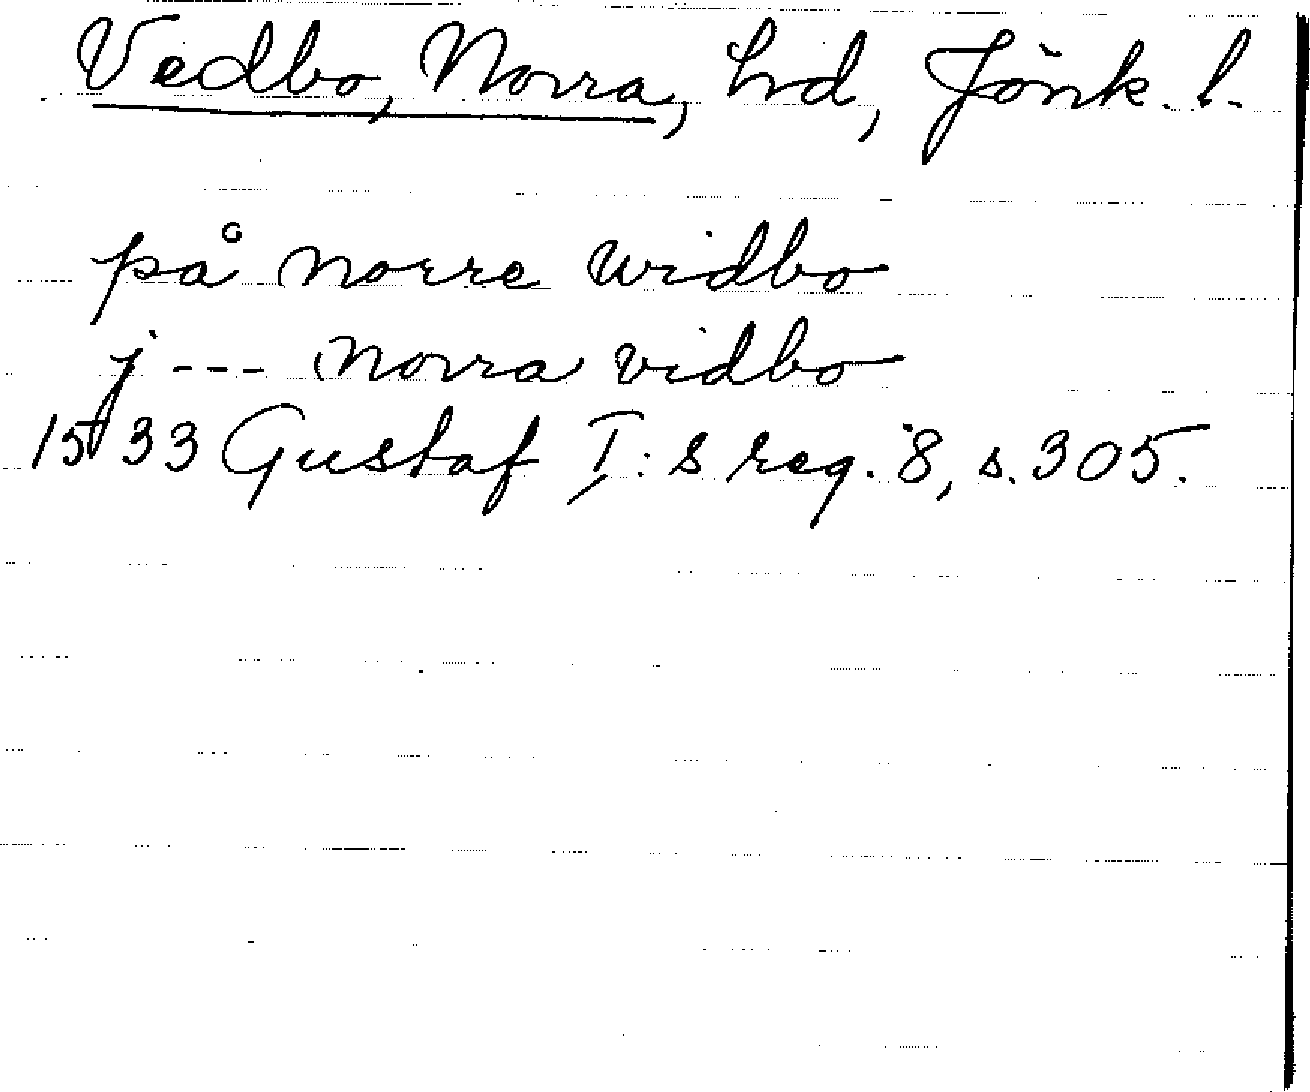 Vedbo, Norra, hrd, Jönk. l.
på norre widbo
j --- norra vidbo
1533 Gustaf I:s reg. 8, s. 305.